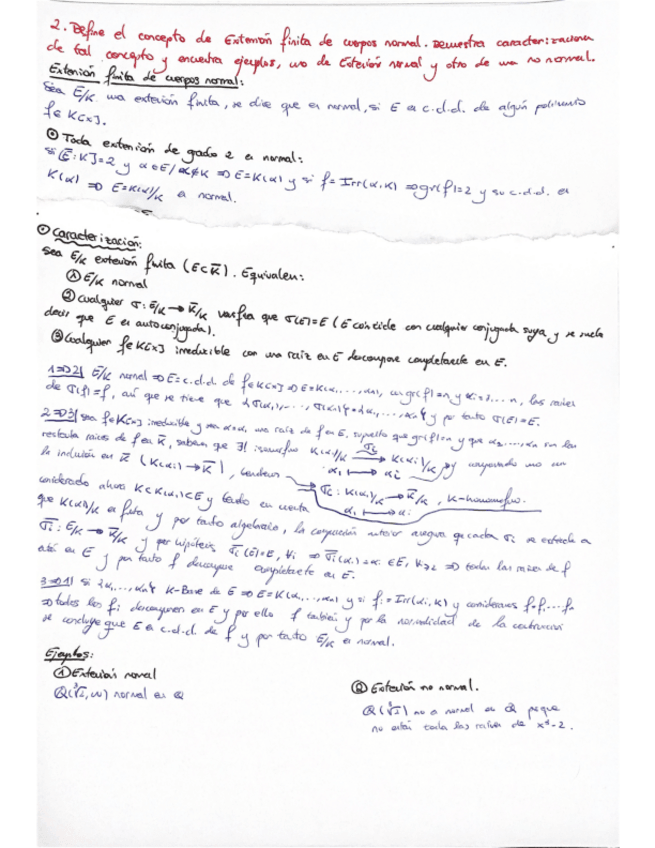 2. Define el concepto de Extensión finita de cuerpos normal. Demuestra caracterizaciones
de tal concepto y encuentra ejemplos, uno de Extensión normal y otro de una no normal.
Extensión finita de cuerpos normal:
Sea E/K una extensión finita, se dice que es normal, si E es c.d.d. de algún polinomio
f∈K[x].
Toda extensión de grado 2 es normal:
si [E:K]=2 y α∈E/α∉K ⇒ E=K(α) y si f=Irr(α,K) ⇒ gr(f)=2 y su c.d.d. es
K(α) ⇒ E=K(α)/K es normal.
Caracterización:
Sea E/K extensión finita (E⊂K̄). Equivalen:
① E/K normal
② Cualquier σ: E/K → K̄/K verifica que σ(E)=E (E coincide con cualquier conjugada suya y se suele
decir que E es autoconjugada).
③ Cualquier f∈K[x] irreducible con una raíz en E descompone completamente en E.
1⇒2| E/K normal ⇒ E=c.d.d. de f∈K[x] ⇒ E=K(α1,...,αn), con gr(f)=n y αi, i=1...n, las raíces
de σ(f)=f, así que se tiene que {σ(α1),...,σ(αn)}={α1,...,αn} y por tanto σ(E)=E.
2⇒3| sea f∈K[x] irreducible y sea α=α1 una raíz de f en E. supuesto que gr(f)=n y que α2,...,αn son las
restantes raíces de f en K̄, sabemos que ∃! isomorfismo K(α1)/K →σi K(αi)/K y componiendo con
α1 ↦ αi
la inclusión en K̄ (K(αi)→K̄), tenemos σi: K(α1)/K → K̄/K, K-homomorfismo.
α1 ↦ αi
considerando ahora K⊂K(α1)⊂E y teniendo en cuenta
que K(α1)/K es finita y por tanto algebraica, la proposición anterior asegura que cada σi se extiende a
σ̄i: E/K → K̄/K y por hipótesis σ̄i(E)=E, ∀i ⇒ σ̄i(α1)=αi∈E, ∀i≥2 ⇒ todas las raíces de f
están en E y por tanto f descompone completamente en E.
3⇒1| si {α1,...,αn} K-Base de E ⇒ E=K(α1,...,αn) y si fi=Irr(αi,K) y consideramos f=f1...fn
⇒ todos los fi descomponen en E y por ello f también y por la minimalidad de la construcción
se concluye que E es c.d.d. de f y por tanto E/K es normal.
Ejemplos:
① Extensión normal
Q(∛2,w) normal en Q
② Extensión no normal.
Q(∛2) no es normal en Q porque
no están todas las raíces de x³-2.